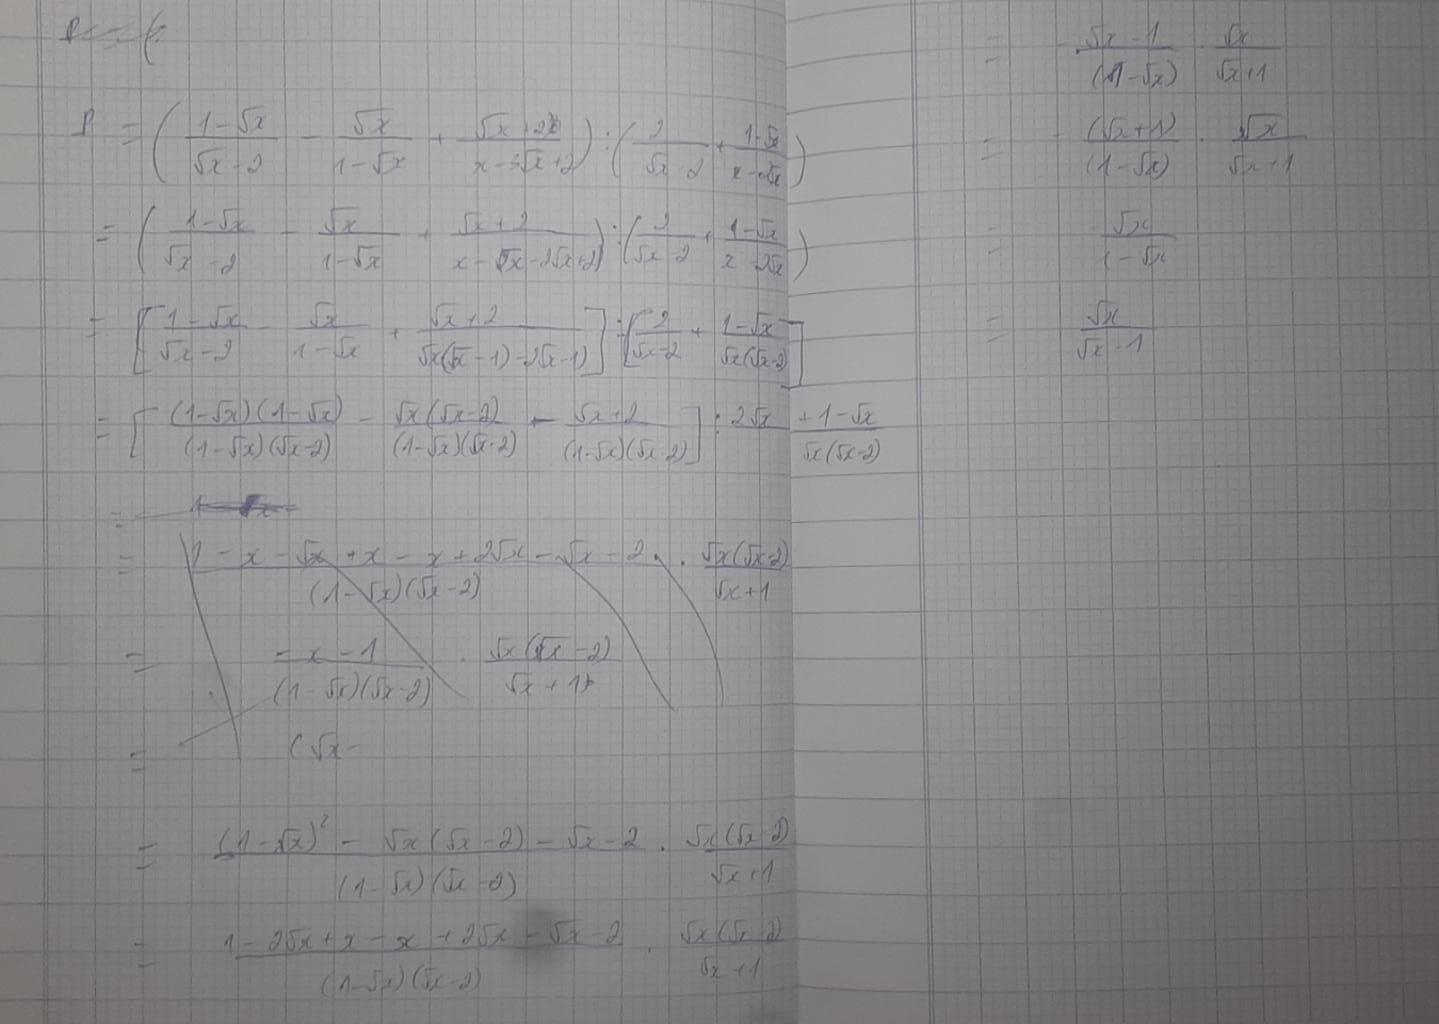 P = ( (1-√x)/(√x-2) - √x/(1-√x) + (√x+2)/(x-3√x+2) ) : ( 2/(√x-2) + (1-√x)/(x-2√x) )
= ( (1-√x)/(√x-2) - √x/(1-√x) + (√x+2)/(x-√x-2√x+2) ) : ( 2/(√x-2) + (1-√x)/(x-2√x) )
= [ (1-√x)/(√x-2) - √x/(1-√x) + (√x+2)/(√x(√x-1)-2√x-1) ] : [ 2/(√x-2) + (1-√x)/(√x(√x-2)) ]
= [ (1-√x)(1-√x)/((1-√x)(√x-2)) - √x(√x-2)/((1-√x)(√x-2)) - (√x+2)/((1-√x)(√x-2)) ] : (2√x+1-√x)/(√x(√x-2))
=
= (1-x-√x+x-x+2√x-√x-2)/((1-√x)(√x-2)) . √x(√x-2)/(√x+1)
= (-x-1)/((1-√x)(√x-2)) . √x(√x-2)/(√x+1)
= (√x-
= ((1-√x)²-√x(√x-2)-√x-2)/((1-√x)(√x-2)) . √x(√x-2)/(√x+1)
= (1-2√x+x-x+2√x-√x-2)/((1-√x)(√x-2)) . √x(√x-2)/(√x+1)
= -(√x-1)/(1-√x) . √x/(√x+1)
= -(√x+1)/(1-√x) . √x/(√x+1)
= -√x/(1-√x)
= √x/(√x-1)